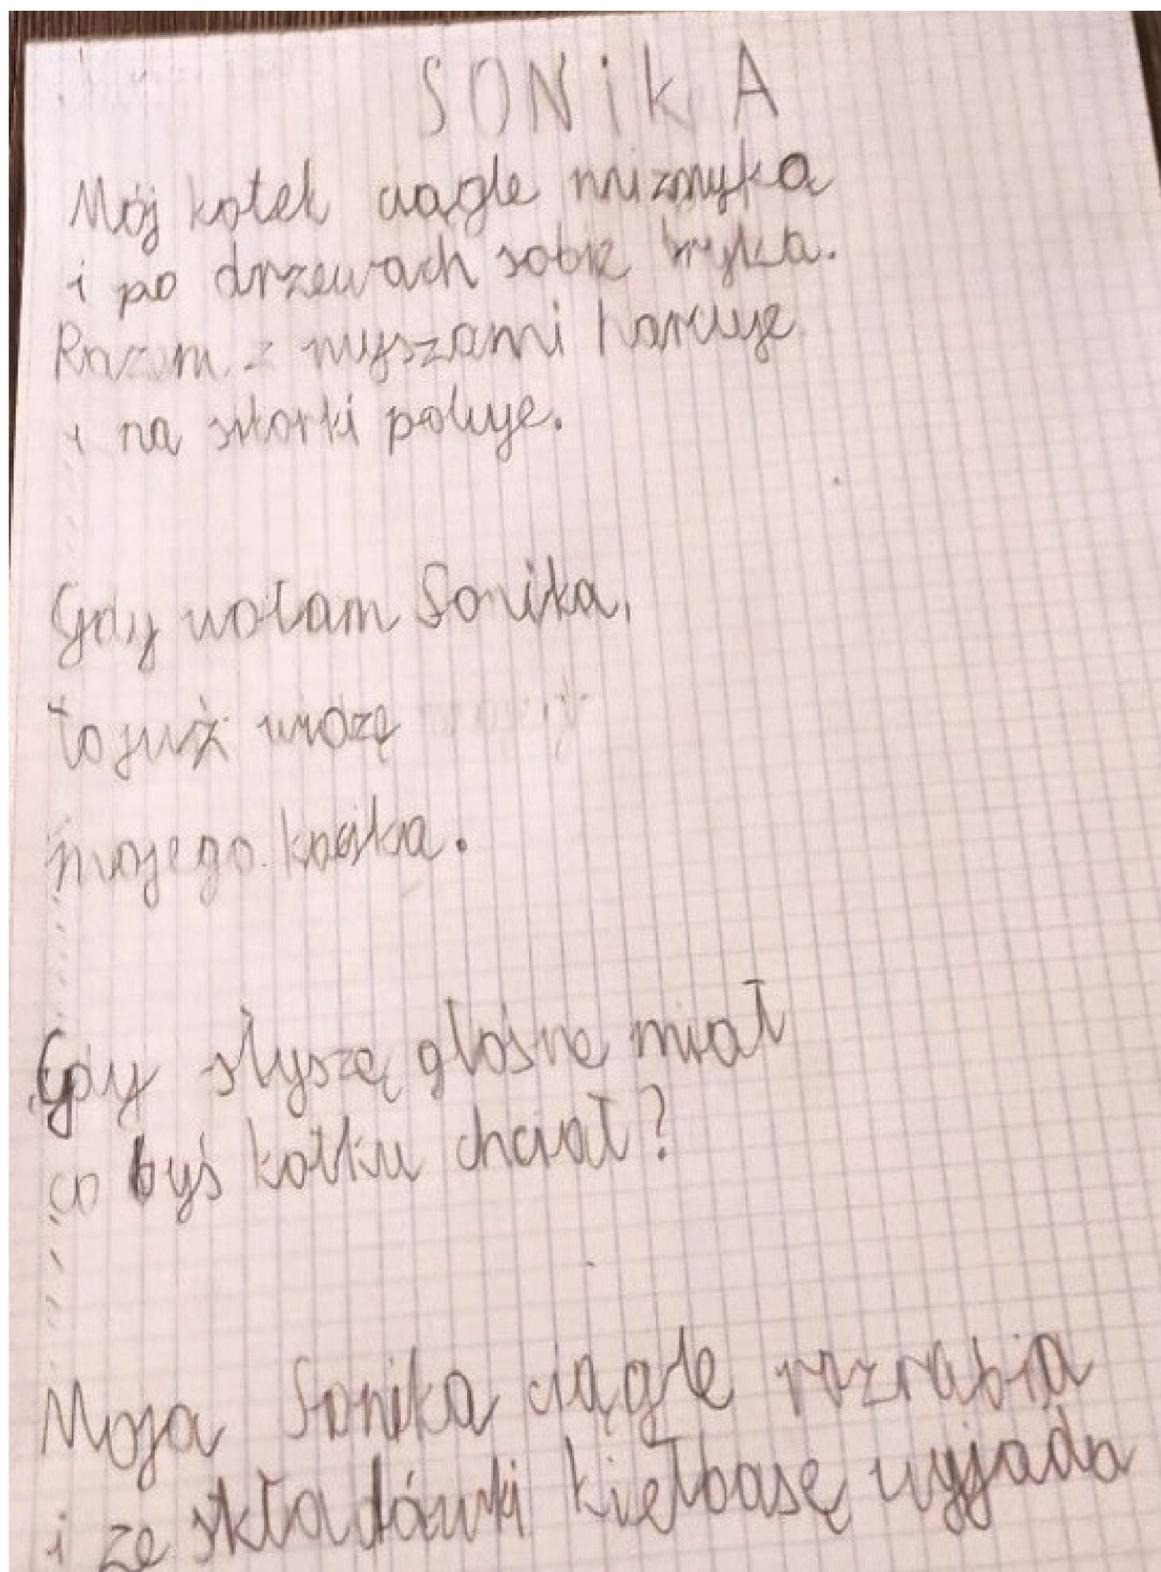 SONiKA
Mój kotek ciągle mizmyka
i po drzewach sobie bryka.
Razem z myszami harcuje
i na sikorki poluje.
Gdy wołam Sonika,
to już widzę
mojego kocika.
Gdy słyszę głośne miał
co byś kotku chciał?
Moja Sonika ciągle rozrabia
i ze składówki kiełbasę wyjada